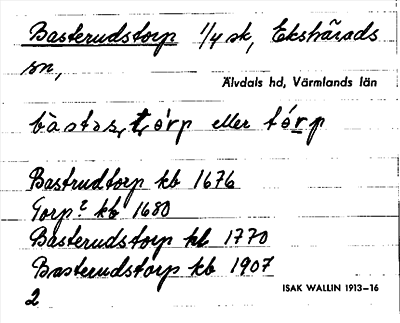 Basterudstorp 1/4 sk, Ekshärads
sn,
Älvdals hd, Värmlands län
bàstas, t, ó̀rp eller tó̀rp
Bastrudtorp kb 1676
Torp? kb 1680
Basterudstorp kb 1770
Basterudstorp kb 1907
2
ISAK WALLIN 1913–16